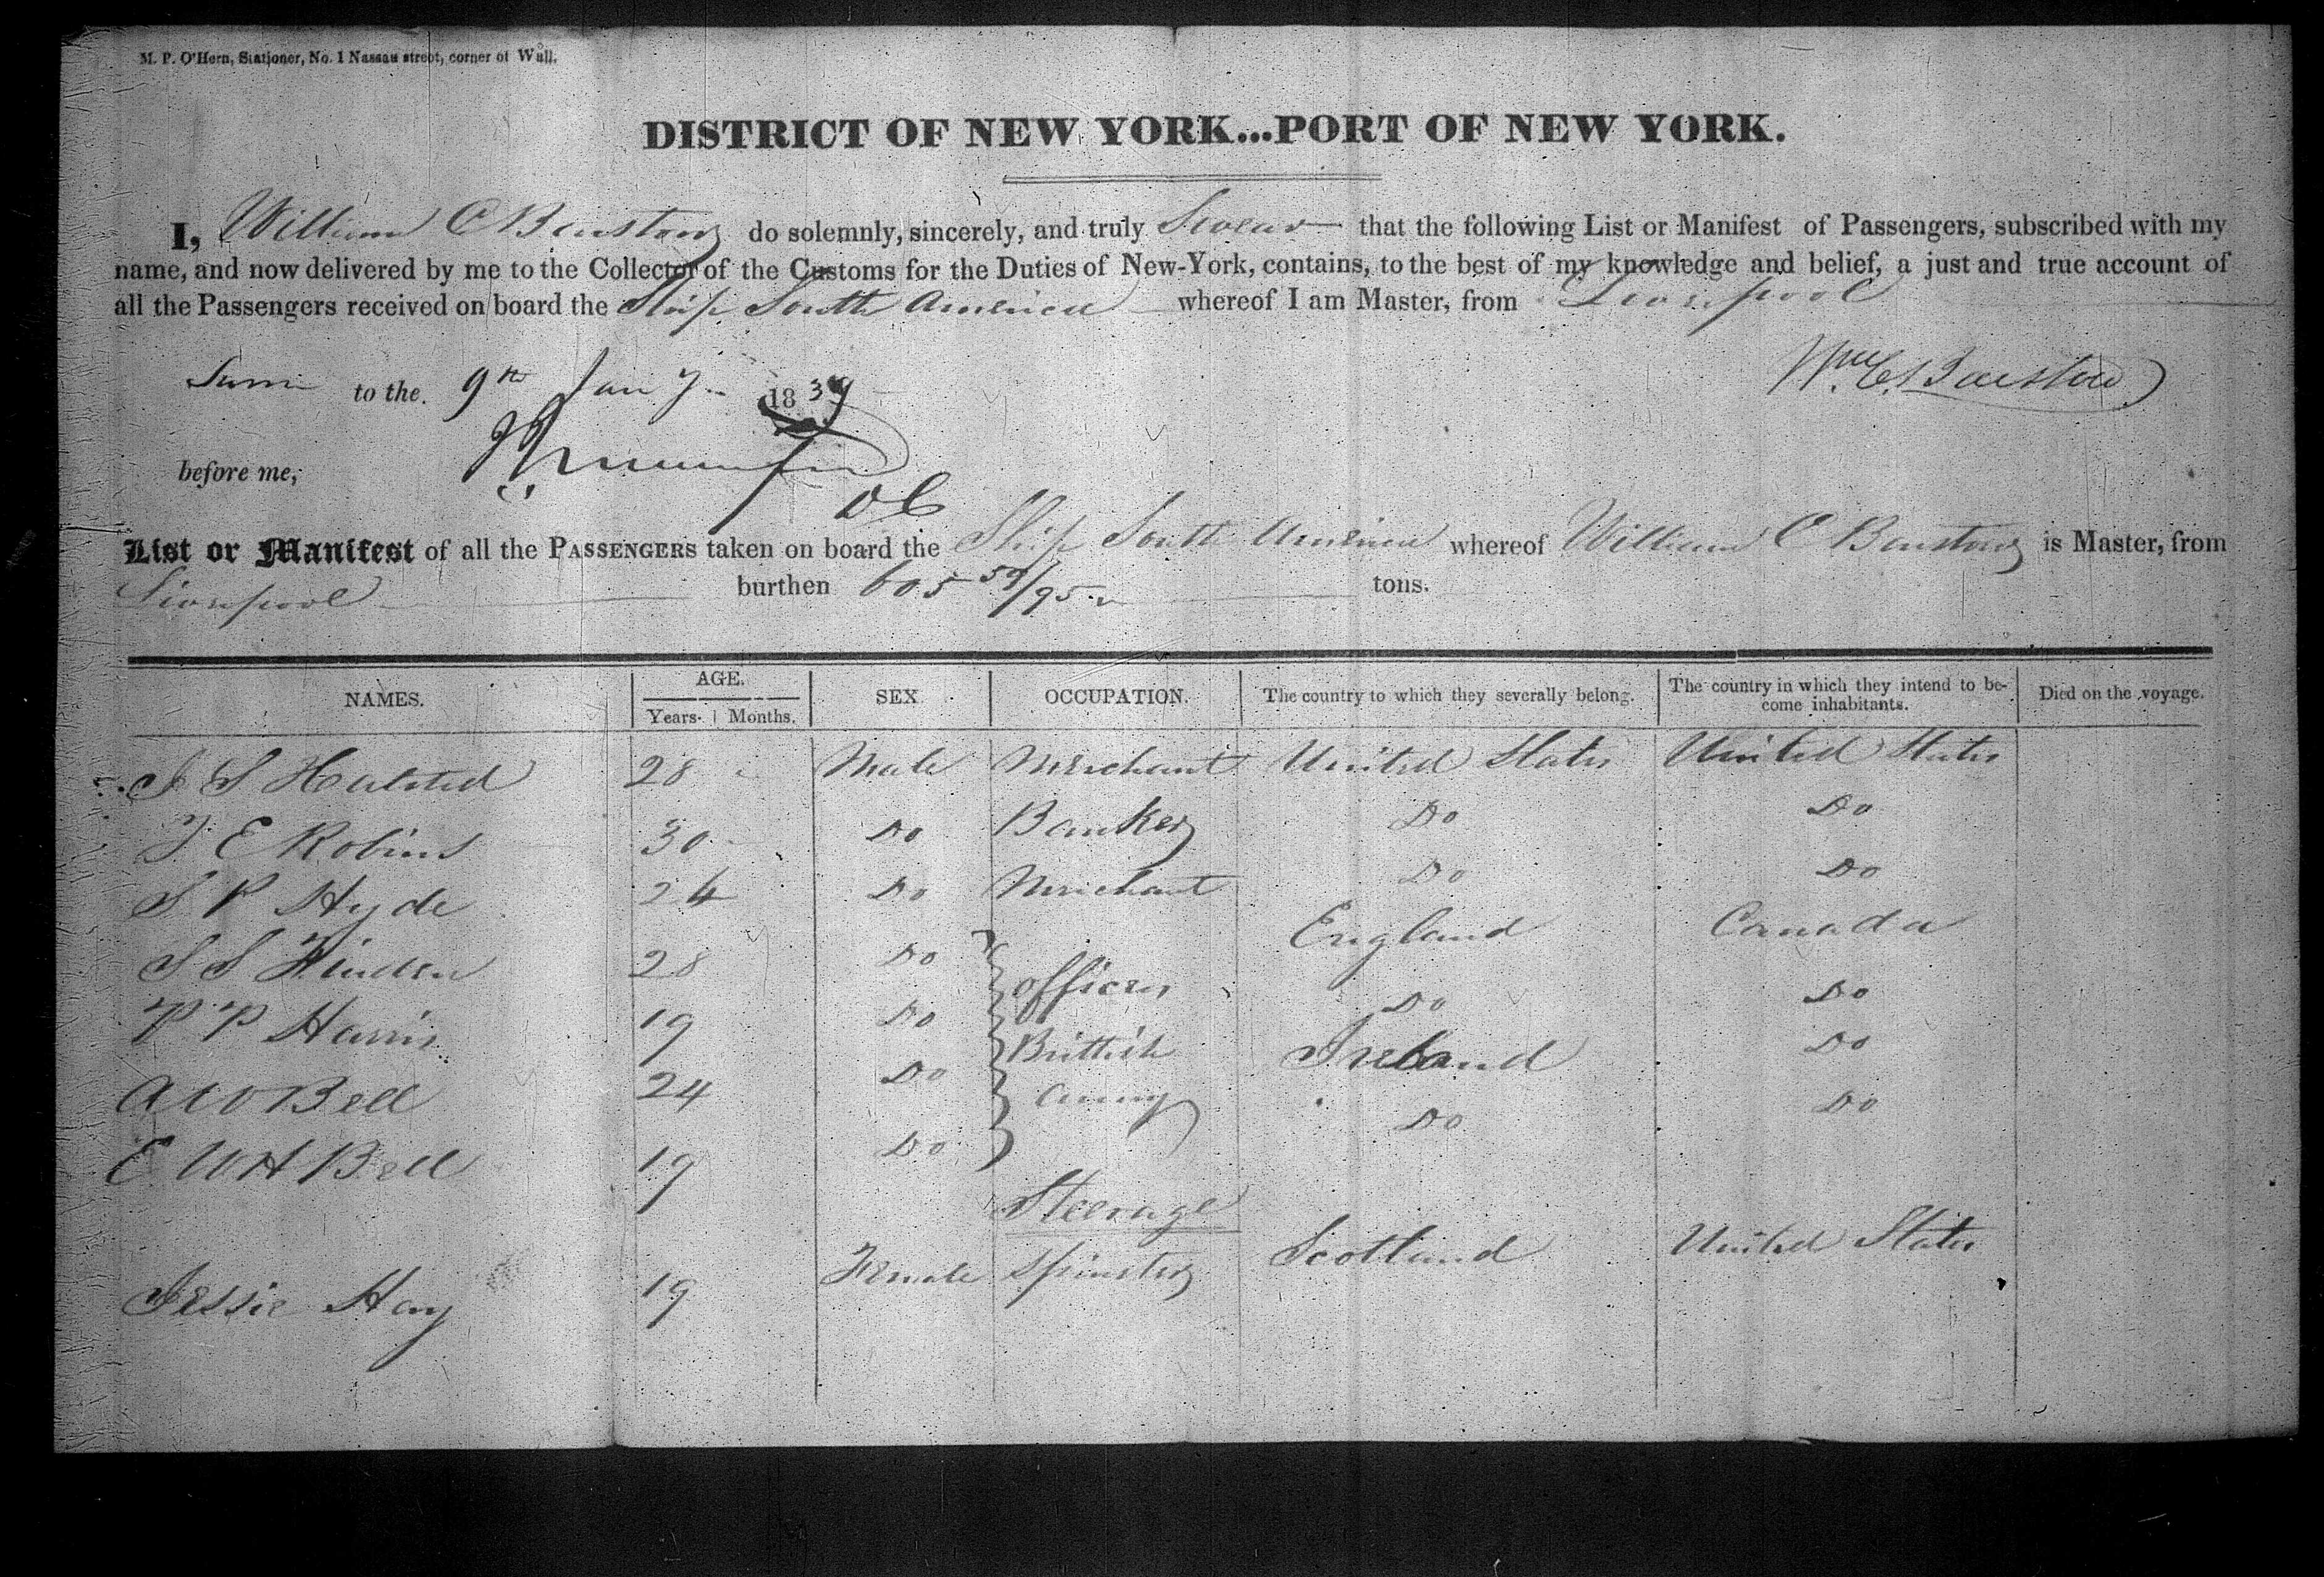 M. P. O'Hern, Stationer, No. 1 Nassau street, corner of Wall.
DISTRICT OF NEW YORK...PORT OF NEW YORK.
I, William C Barstow do solemnly, sincerely, and truly Swear that the following List or Manifest of Passengers, subscribed with my
name, and now delivered by me to the Collector of the Customs for the Duties of New-York, contains, to the best of my knowledge and belief, a just and true account of
all the Passengers received on board the Ship South America whereof I am Master, from Liverpool
Wm C Barstow
to the 9th Jany 1839
before me,
DC
List or Manifest of all the PASSENGERS taken on board the Ship South America whereof William C Barstow is Master, from
Liverpool burthen 605 59/95 tons.
NAMES. AGE. Years. Months. SEX OCCUPATION. The country to which they severally belong. The country in which they intend to be-
come inhabitants. Died on the voyage.
J S Halsted 28 Male Merchant United States United States
T E Robins 30 Do Banker Do Do
S P Hyde 24 Do Merchant Do Do
S S 28 Do England Canada
officers
P P Harris 19 Do Do Do
Brittish
A W Bell 24 Do Ireland Do
Army
E W H Bell 19 Do Do Do
Steerage
Jessie Hay 19 Female Spinster Scotland United States